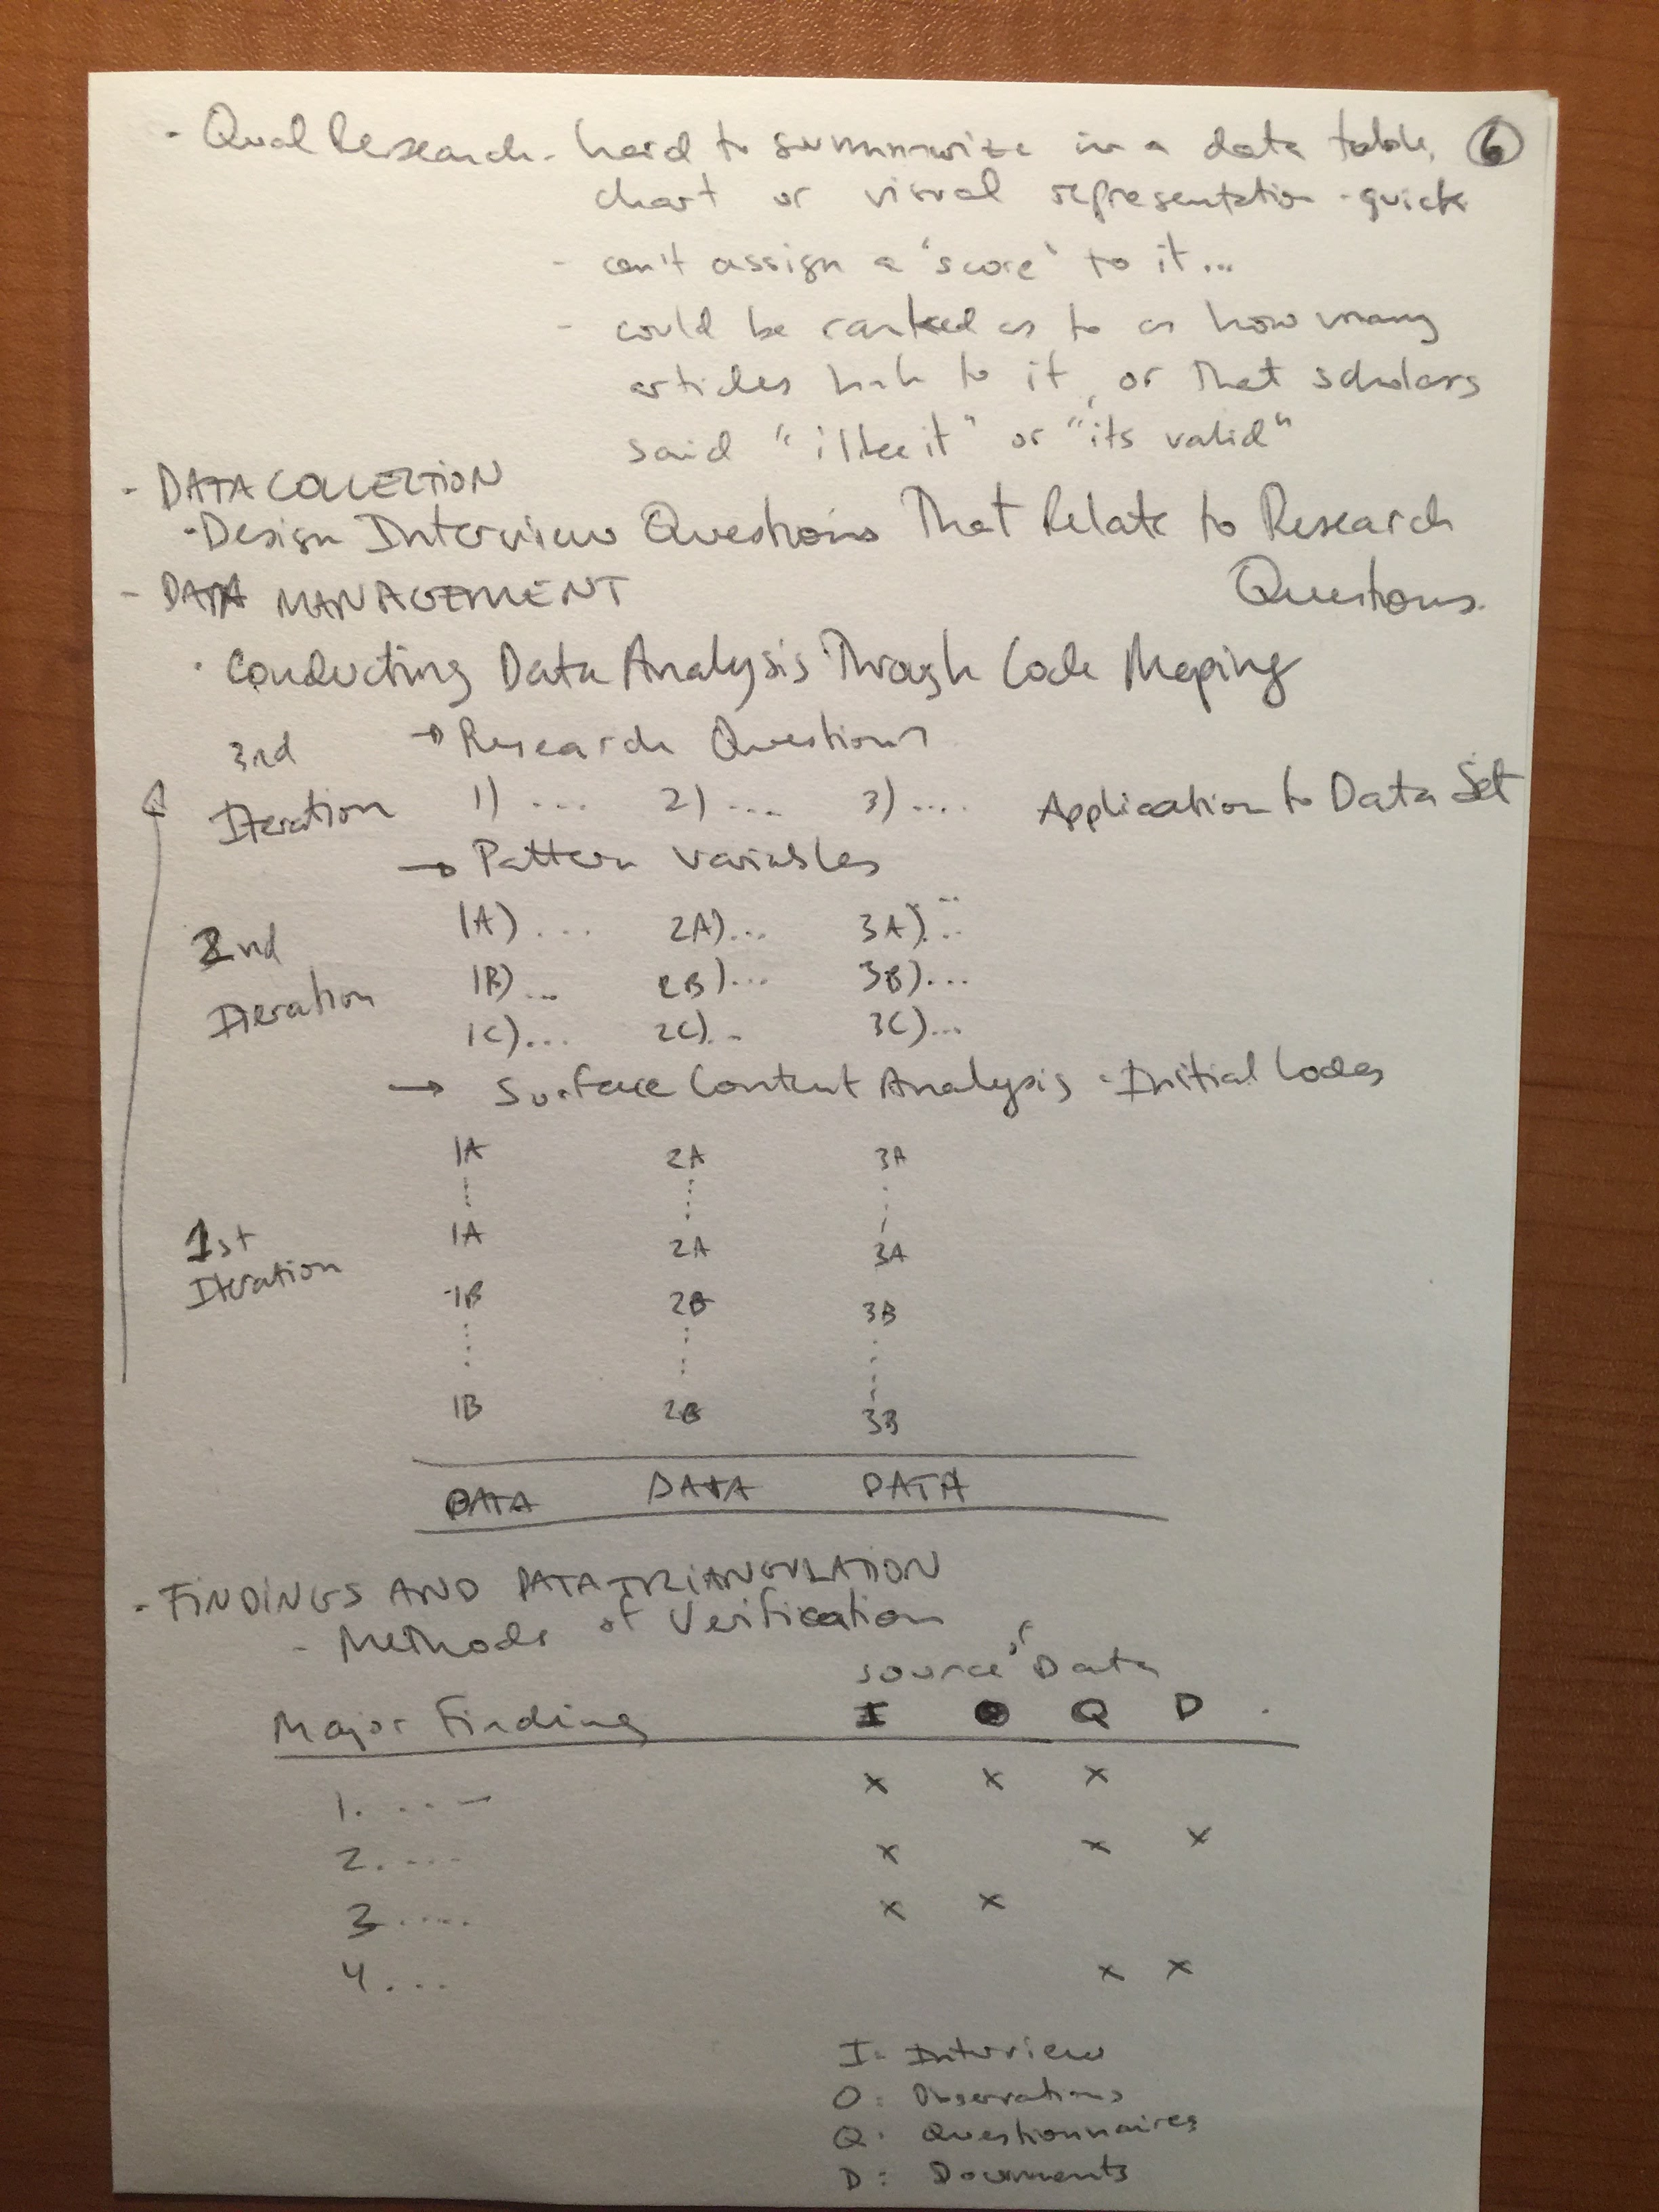 - Qual Research - hard to summarize in a data table, 6
chart or visual representation - quick
- can't assign a 'score' to it...
- could be ranked as to as how many
articles link to it, or that scholars
said "i like it" or "its valid"
- DATA COLLECTION
- Design Interview Questions That Relate to Research
Questions.
- DATA MANAGEMENT
· Conducting Data Analysis Through Code Maping
3rd → Research Questions
Iteration 1) ... 2) .... 3) .... Application to Data Set
→ Pattern Variables
1A) ... 2A)... 3A)...
2nd
1B) ... 2B)... 3B)...
Iteration
1C)... 2C).. 3C)...
→ Surface Content Analysis - Initial Codes
1A 2A 3A
1A 2A 3A
1st
Iteration
1B 2B 3B
1B 2B 3B
DATA DATA DATA
- FINDINGS AND DATA TRIANGULATION
- Methods of Verification
source of Data
Major Finding I O Q D
1. ... x x x
2. .... x x x
3 ..... x x
4 ... x x
I - Interview
O: Observations
Q: Questionnaires
D: Documents